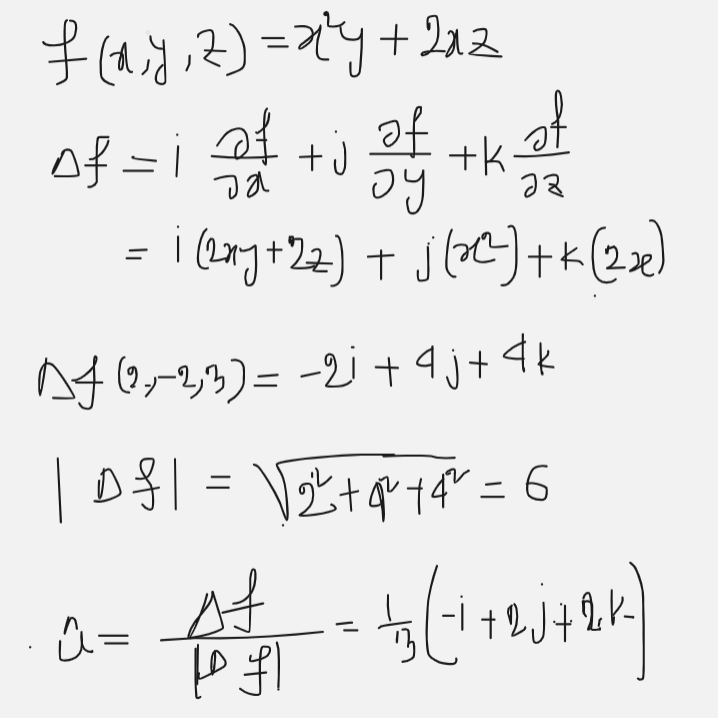 f(x,y,z) = x²y + 2xz
Δf = i ∂f/∂x + j ∂f/∂y + k ∂f/∂z
= i(2xy+2z) + j(x²) + k(2x)
Δf(2,-2,3) = -2i + 4j + 4k
|Δf| = √(2²+4²+4²) = 6
û = Δf/|Δf| = 1/3(-i + 2j + 2k)